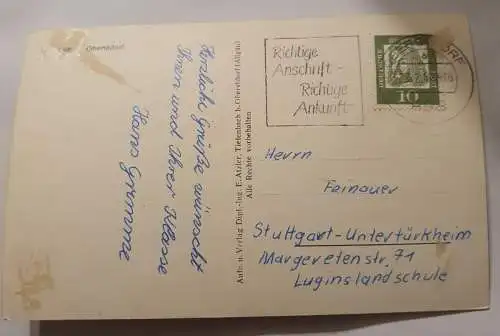 Oberstdorf
Herzliche Grüße wünscht
Ihnen und Ihrer Klasse
Hans Grimme
Aufn. u. Verlag Dipl.-Ing. E. Atzler, Tiefenbach b. Oberstdorf (Allgäu)
Alle Rechte vorbehalten
Richtige
Anschrift -
Richtige
Ankunft
10
Herrn
Fainauer
Stuttgart-Untertürkheim
Margeretenstr. 71
Luginslandschule